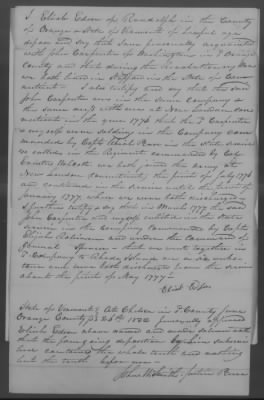 I Eliab Edson of Randolph in the County
of Orange & State of Vermont of lawful age
depose and say that I am personally acquainted
with John Carpenter of Washington in Sd Orange
County and State during the revolutionary war
we both lived in Stafford in the State of Con
necticut - I also testify and say that the said
John Carpenter was in the same company &
the same with me at New London Con
necticut in the year 1776 that the Sd Carpenter
& myself were soldiers in the Company com
manded by Capt in the State service
so called in the Regiment commanded by Col
Erastus Wolcott we both joined the army at
New London Connecticut the first of July 1776
and continued in the service until the first of
January 1777 when we were both discharged
I further testify & say that in March 1777 the said
John Carpenter and myself enlisted in the State
service in the Company commanded by Capt
Robinson and under the command of
General Spencer that we went together in
Sd Company to Rhode Island on a six weeks
tour and were both discharged from the service
about the first of May 1777
Eliab Edson
State of Vermont At Chelsea in Sd County June
Orange County ss 26th 1832 personally appeared
Eliab Edson above named and made solemn oath
that the foregoing deposition by him subscri
bed contained the whole truth and nothing
but the truth before me
John W Smith Justice Peace